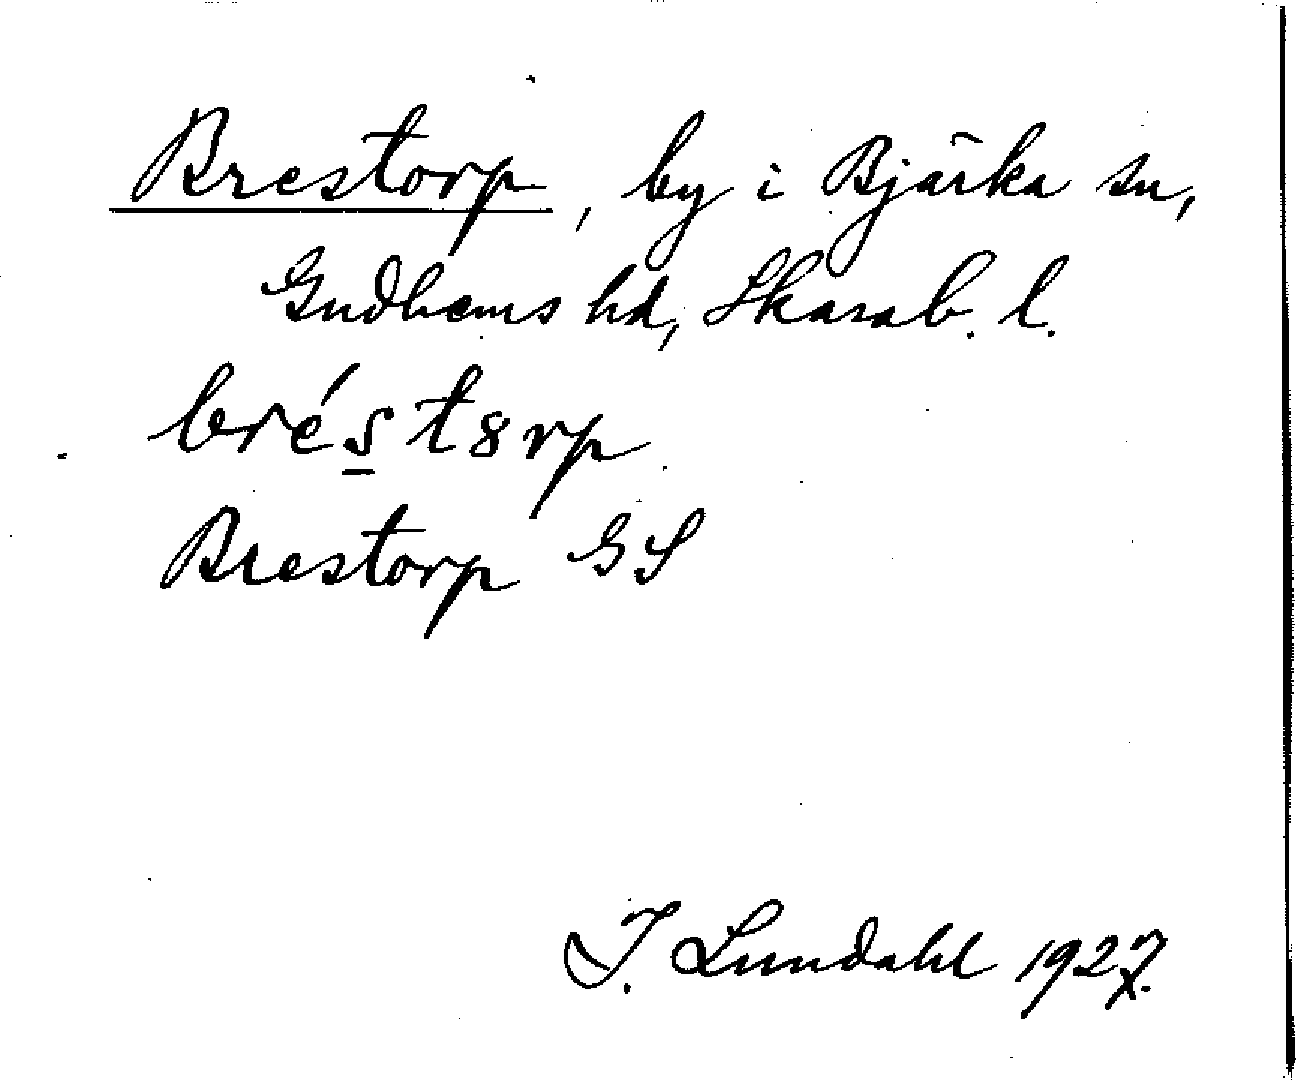 Brestorp, by i Bjärka sn,
Gudhems hd, Skarab. l.
brés̲t8rp
Brestorp GS
I. Lundahl 1927.